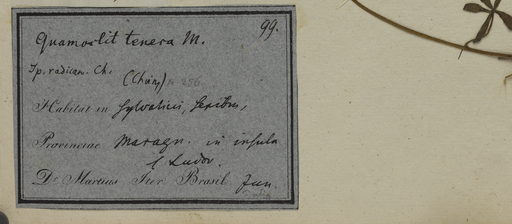 99.
Quamoclit tenera M.
Ip. radican. Ch.
(Choisy) n 256
Habitat in sylvaticis, sepibus,
Provinciae Maragn. in insula
S. Ludov.
Dr. Martius Iter Brasil. Jun.